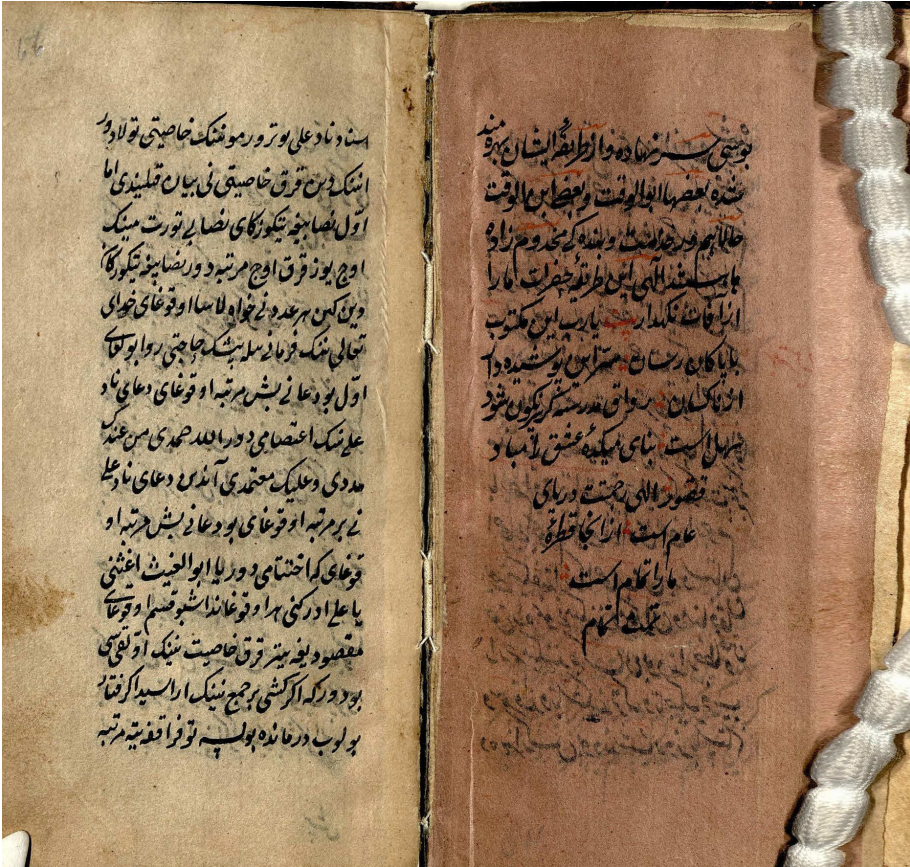 نوشی سر نهاده و از طریقهٔ ایشان بهره مند
شده بعضها ابو الوقت و بعضها ابن الوقت
حالا هم در خدمت و بنده کی مخدوم زاده
الهی این طریقهٔ حضرت ما را
از آفات نکهدار یا رب این مکتوب
با پاکان رسان سر این پوشیده دار
از ناکسان رواق مدرسه کر سرنکون شود
سهل است بنای میکدهٔ عشق را مباد
قصور الهی رحمت دریای
عام است از آنجا قطرهٔ
ما را تمام است
تمت تمام
اسناد ناد علی بو ترور مونینک خاصیتی تولا دور
انینک دین قرق خاصیتی نی بیان قیلیندی اما
اول نصابیغه تیکورکای نصابی تورت مینک
اوج یوز قرق اوج مرتبه دور نصابیغه تیکورکان
دین کین هر عدد نی خواه لاسا اوقوغای خدای
تعالی نینک فرمانی بیله بیشک حاجتی روا بولغای
اول بو دعا نی بش مرتبه اوقوغای دعای ناد
علی نینک اعتصامی دور الله صمدی من عندک
مددی و علیک معتمدی آندین دعای ناد علی
نی بر مرتبه اوقوغای بو دعا نی بش مرتبه او
قوغای که اختتامی دور یا ابو الغیث اغثنی
یا علی ادرکنی هر اوقوغاندا شبو قسم اوقوغای
مقصودیغه یتر قرق خاصیت نینک اولقی سی
بو دور که اکر کشی بر جمع نینک اراسیدا کرفتار
بولوب درمانده بولسه توفراقغه یته مرتبه